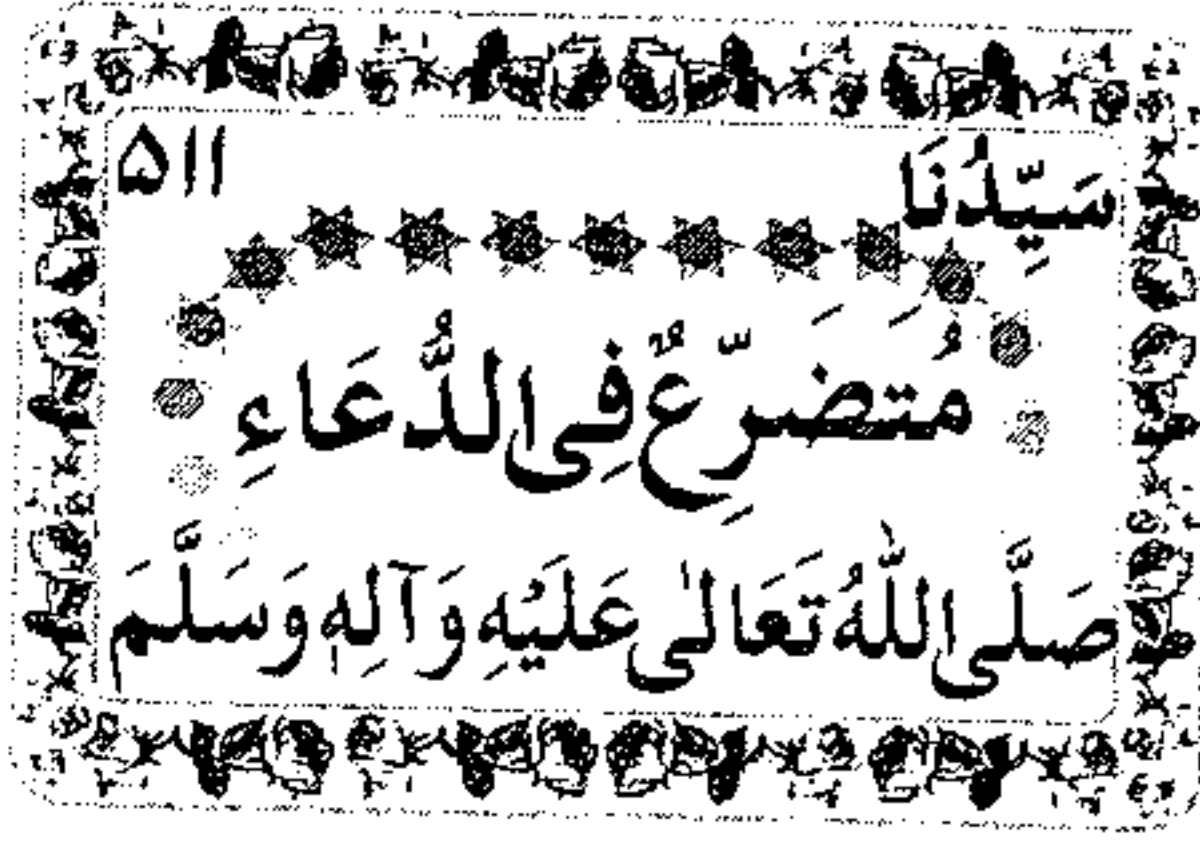 سَيِّدُنَا ۵۱۱
مُتَضَرِّعٌ فِی الدُّعَاءِ
صَلَّی اللّٰهُ تَعَالٰی عَلَيْهِ وَآلِهٖ وَسَلَّمَ